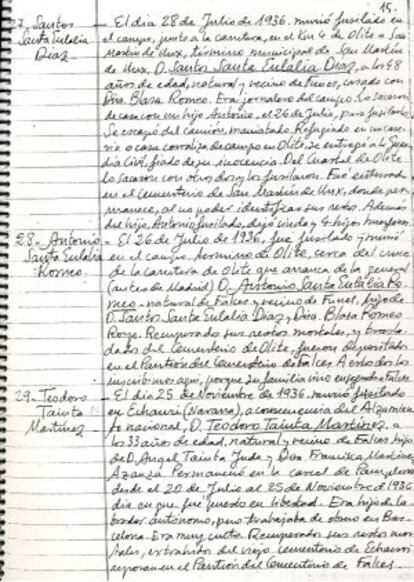 15.
27. Santos — El día 28 de Julio de 1936. murió fusilado en
Santa Eulalia el campo, junto a la carretera, en el Km 4 de Olite a San
Díaz — Martín de Unx, término municipal de San Martín
de Unx, D. Santos Santa Eulalia Díaz, a los 48
años de edad, natural y vecino de Funes, casado con
Dña. Blasa Romeo. Era jornalero del campo. Lo sacaron
de casa con un hijo Antonio, el 26 de Julio, para fusilarlos.
Se escapó del camión, maniatado. Refugiado en un case-
río o casa corraliza de campo en Olite, se entregó a la Guar-
dia Civil, fiado de su inocencia. Del Cuartel de Olite
lo sacaron con otros dos y los fusilaron. Fué enterrado
en el Cementerio de San Martín de Unx, donde per-
manece, al no poder identificar sus restos. Además
del hijo Antonio fusilado, dejó viuda y 4 hijos huérfanos.
28 - Antonio — El 26 de Julio de 1936, fué fusilado y murió
Santa Eulalia en el campo, término de Olite, cerca del cruce
Romeo. de la carretera de Olite que arranca de la general
(antes de Madrid) D. Antonio Santa Eulalia Ro-
meo - natural de Falces y vecino de Funes, hijo de
D. Santos Santa Eulalia Díaz y Dña. Blasa Romeo
Roza. Recuperado sus restos mortales, y trasla-
dados del Cementerio de Olite, fueron depositados
en el Panteón del Cementerio de Falces. A estos dos los
inscribimos aquí, porque su familia vino enseguida a Falces
29 - Teodoro — El día 25 de Noviembre de 1936, murió fusilado
Tainta en Echauri (Navarra), a consecuencia del Alzamien-
Martínez — to nacional, D. Teodoro Tainta Martínez, a
los 33 años de edad, natural y vecino de Falces, hijo
de D. Angel Tainta Jude y Dña. Francisca Martínez
Azanza. Permaneció en la carcel de Pamplona
desde el 20 de Julio al 25 de Noviembre de 1936
día en que fue puesto en libertad. Era hijo de la-
brador autónomo, pero trabajaba de obrero en Bar-
celona. Era muy culto. Recuperados sus restos mor-
tales, extraídos del viejo cementerio de Echauri
reposan en el Panteón del Cementerio de Falces.